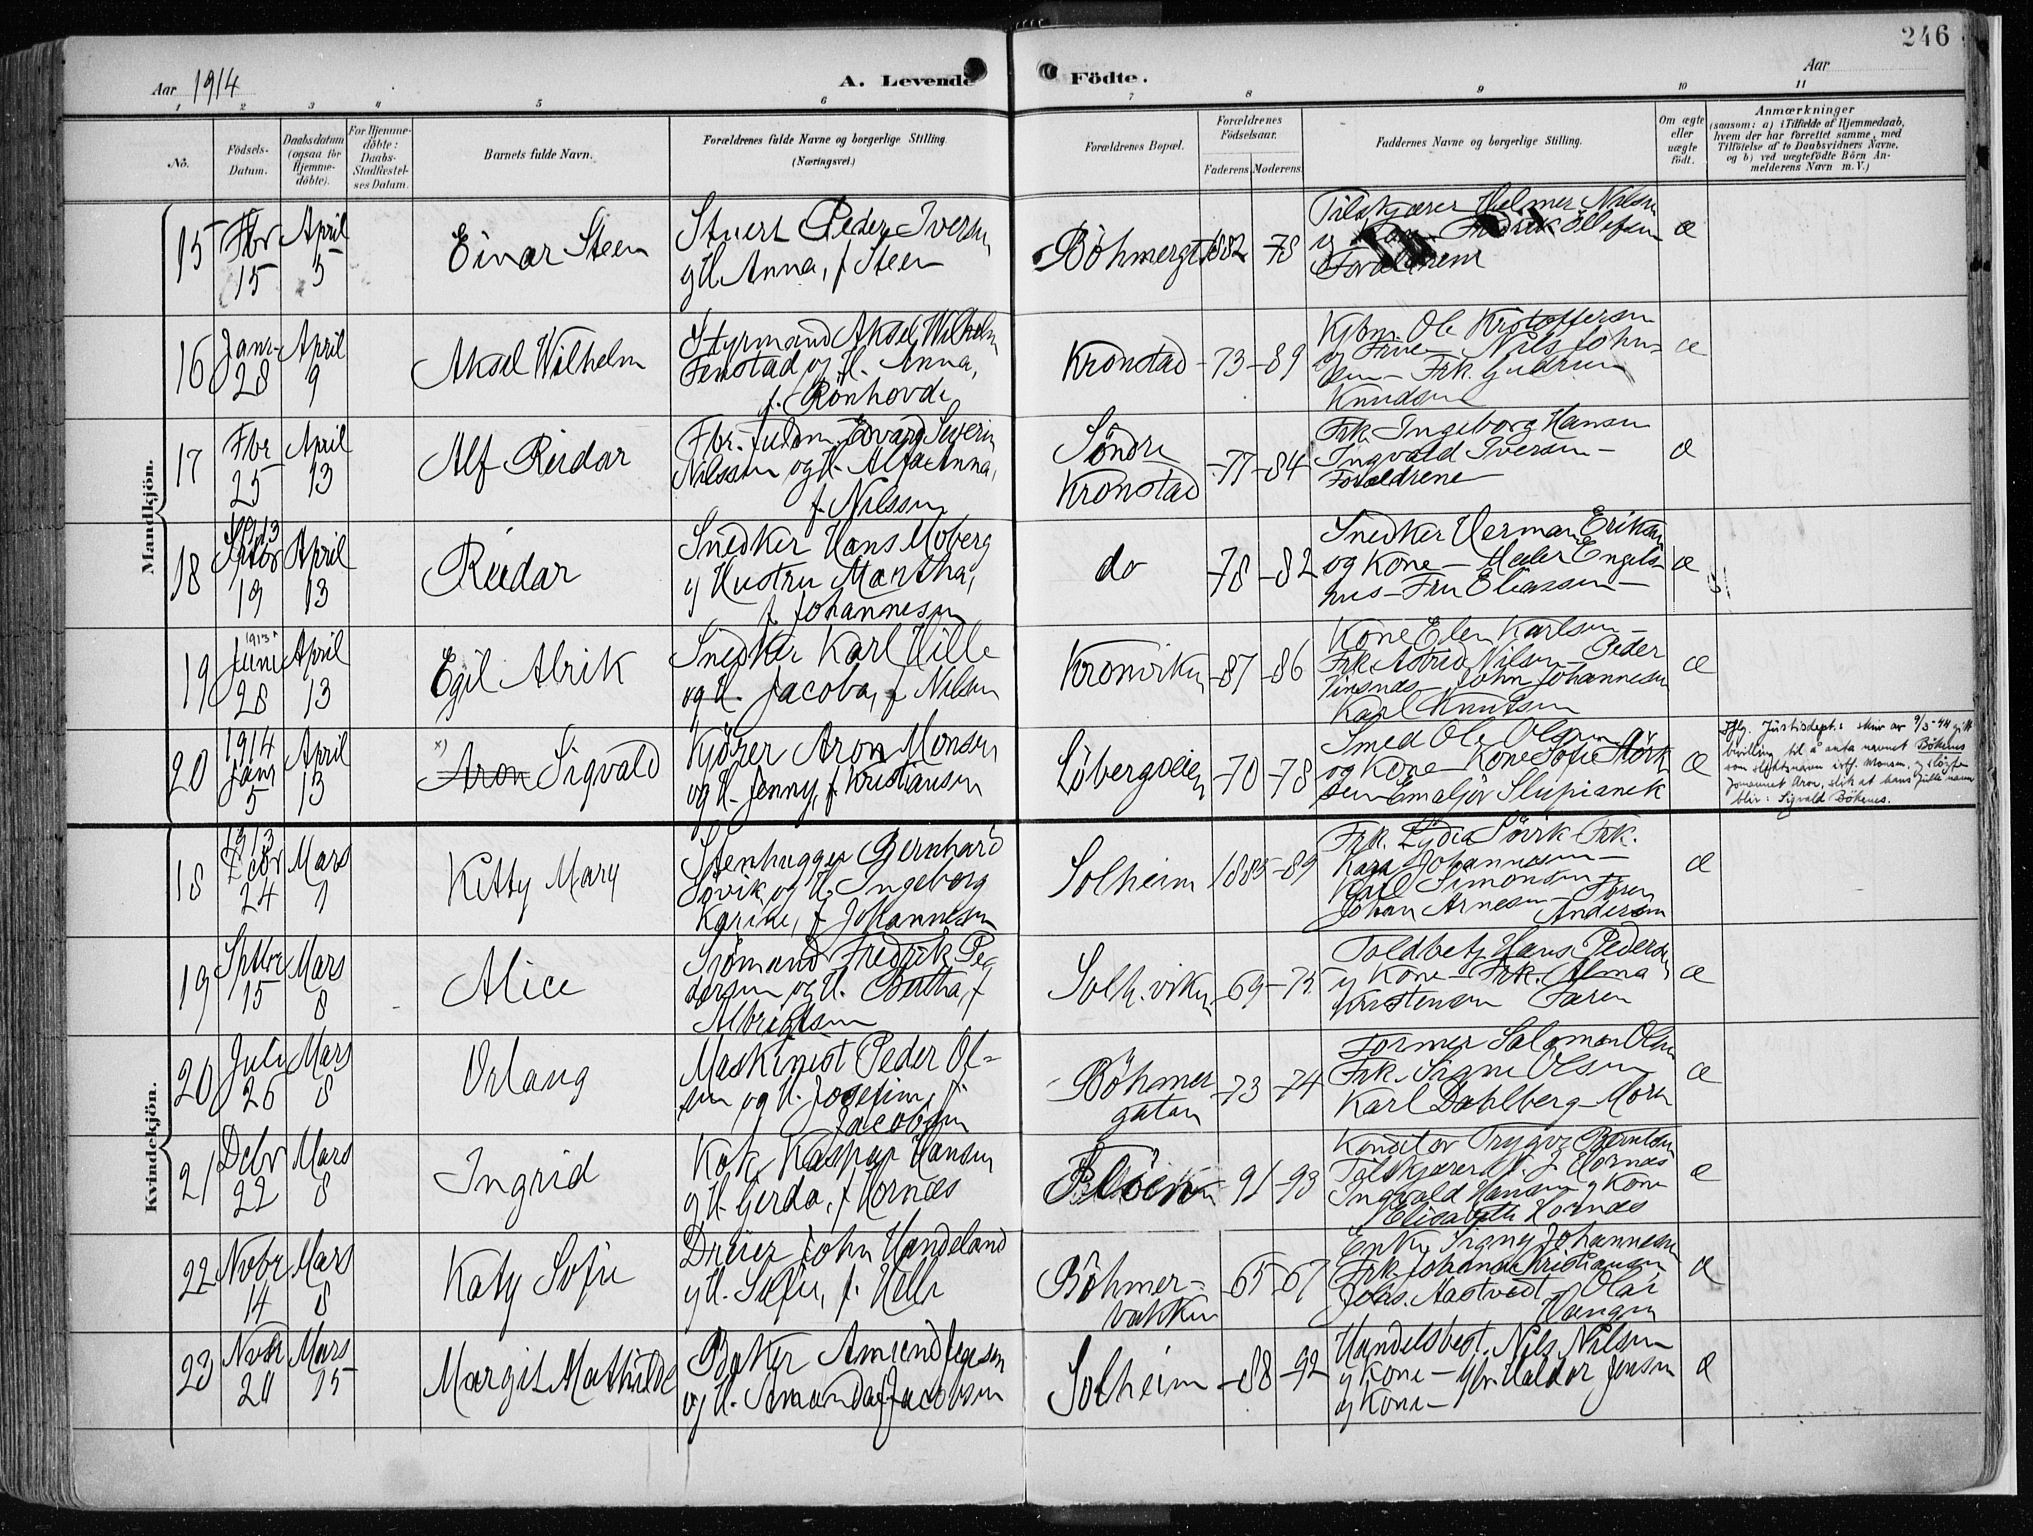 246
Aar 1914
A. Levende Födte.
Aar
1 2 3 4 5 6 7 8 9 10 11
Nó.
Födsels-
Datum.
Daabsdatum
(ogsaa for
Hjemme-
döbte).
For Hjemme-
döbte:
Daabs-
Stadfæstel-
ses Datum.
Barnets fulde Navn.
Forældrenes fulde Navne og borgerlige Stilling
(Næringsvei.)
Forældrenes Bopæl.
Forældrenes
Födselsaar.
Faderens Moderens
Faddernes Navne og borgerlige Stilling.
Om ægte
eller
uægte
födt.
Anmærkninger
(saasom: a) i Tilfælde af Hjemmedaab,
hvem der har forrettet samme, med
Tilföielse af to Daabsvidners Navne.
og b) ved uægtefödte Börn An-
melderens Navn m. V.)
Mandkjön.
15 Fbr 15 April 5
Einar Steen
Stuert Peder Iversen
og H. Anna, f. Steen
Böhmergt. 1882 -78
Tilskjærer Helmer Nilsen
Fredrik Ellefsen
Forældrene
æ
16 Janr. 28 April 9
Aksel Wilhelm
Styrmand Aksel Wilhelm
Finstad og H. Anna,
f. Rönhovde
Kronstad -73 -89
Kjbm. Ole Kristoffersen
og Frue - Nils John-
sen - Frk. Gudrun
Knudsen
æ
17 Fbr 25 April 13
Alf Reidar
Edvard Severin
Nilssen og H. Anna,
f. Nilssen
Söndre
Kronstad -77 -84
Frk. Ingeborg Hansen
Ingvald Iversen -
Forældrene
æ
18 1913 Sptbr 19 April 13
Reidar
Snedker Hans Moberg
og Hustru Martha,
f. Johannesen
do -78 -82
Snedker Herman Eriksen
og Kone - Maler Engels-
hus - Fru Eliassen -
æ
19 1913 Juni 28 April 13
Egil Alrik
Snedker Karl Hille
og H. Jacoba, f. Nilsen
Kronviken -87 -86
Kone Elen Karlsen -
Frk. Astrid Nilsen - Peder
Vinsnes - John Johannesen
Karl Knutsen
æ
20 1914 Janr 5 April 13
x) Aron Sigvald
Kjörer Aron Monsen
og H. Jenny, f. Kristiansen
Löbergsveien -70 -78
Smed Ole Olsen
og Kone - Kone Sofie Störk-
sen Emaljör Slupianek
æ
Iflg. Justisdept: skriv av 9/3-44 gitt
bevilling til å anta navnet Bökenes
som slektsnavn istf. Monsen, og slöyfe
fornavnet Aron, slik at hans fulle navn
blir: Sigvald Bökenes.
Kvindekjön.
18 1913 Debr 24 Mars 7
Kitty Mary
Stenhugger Bernhard
Sövik og H. Ingeborg
Karine, f. Johannesen
Solheim 1885 -89
Frk. Lydia Sövik - Frk.
Kaga Johannesen -
Karl Simonsen -
Johan Arnesen - Sören
Andersen
æ
19 Sptbr 15 Mars 8
Alice
Sjömand Fredrik Pe-
dersen og H. Bertha, f.
Albrigtsen
Solh.viken -69 -75
Toldbetj. Hans Pedersen
og Kone - Frk. Alma
Kristensen Faren
æ
20 Juli 26 Mars 8
Orlaug
Maskinist Peder Ol-
sen og H. Josefine, f.
Jacobsen
Böhmer
gaten -73 -74
Former Salomon Olsen
Frk. Signe Olsen
Karl Dahlberg - Moren
æ
21 Debr 22 Mars 8
Ingrid
Kok Kaspar Hansen
og H. Gerda, f. Hornæs
Flöien 91 -93
Konditor Trygve Berntsen
Tilskjærer Hornæs
Ingvald Hansen og Kone
Elisabeth Hornæs
æ
22 Novbr 14 Mars 8
Katy Sofie
Dreier John Handeland
og H. Sofie, f. Helle
Böhmer-
bakken -65 -67
Enke Signy Johannesen
Frk. Johanna Kristiansen
Johs. Aastvedt - Olai
Haugen
æ
23 Novbr 20 Mars 15
Margit Mathilde
Baker Amund Jegesen
og H. Amanda f. Jacobsen
Solheim -88 -92
Handelsbest. Nils Nilsen
og Kone - Gbr. Haldor Jensen
og Kone -
æ